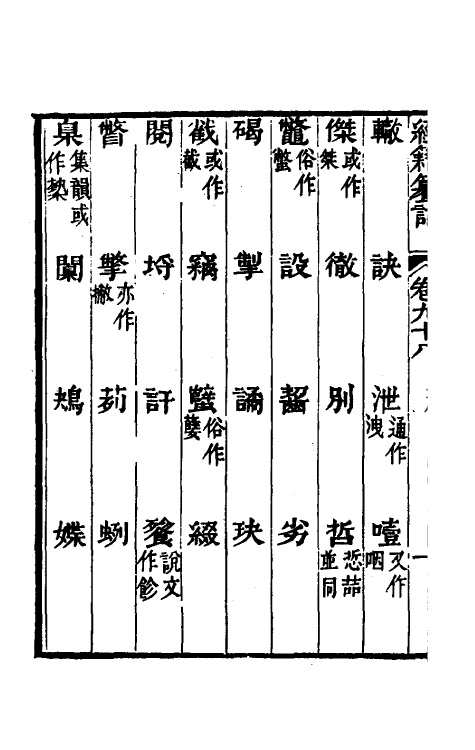 經籍籑詁 卷九十八
轍 訣 泄通作洩 噎又作咽
傑或作桀 徹 別 哲悊喆並同
鼈俗作鱉 設 齧 劣
碣 掣 譎 玦
截或作 竊 俗作 綴
閱 埒 訐 餮說文作飻
瞥 撆亦作撇 茢 蛚
臬集韻或作槷 闑 鴂 媟